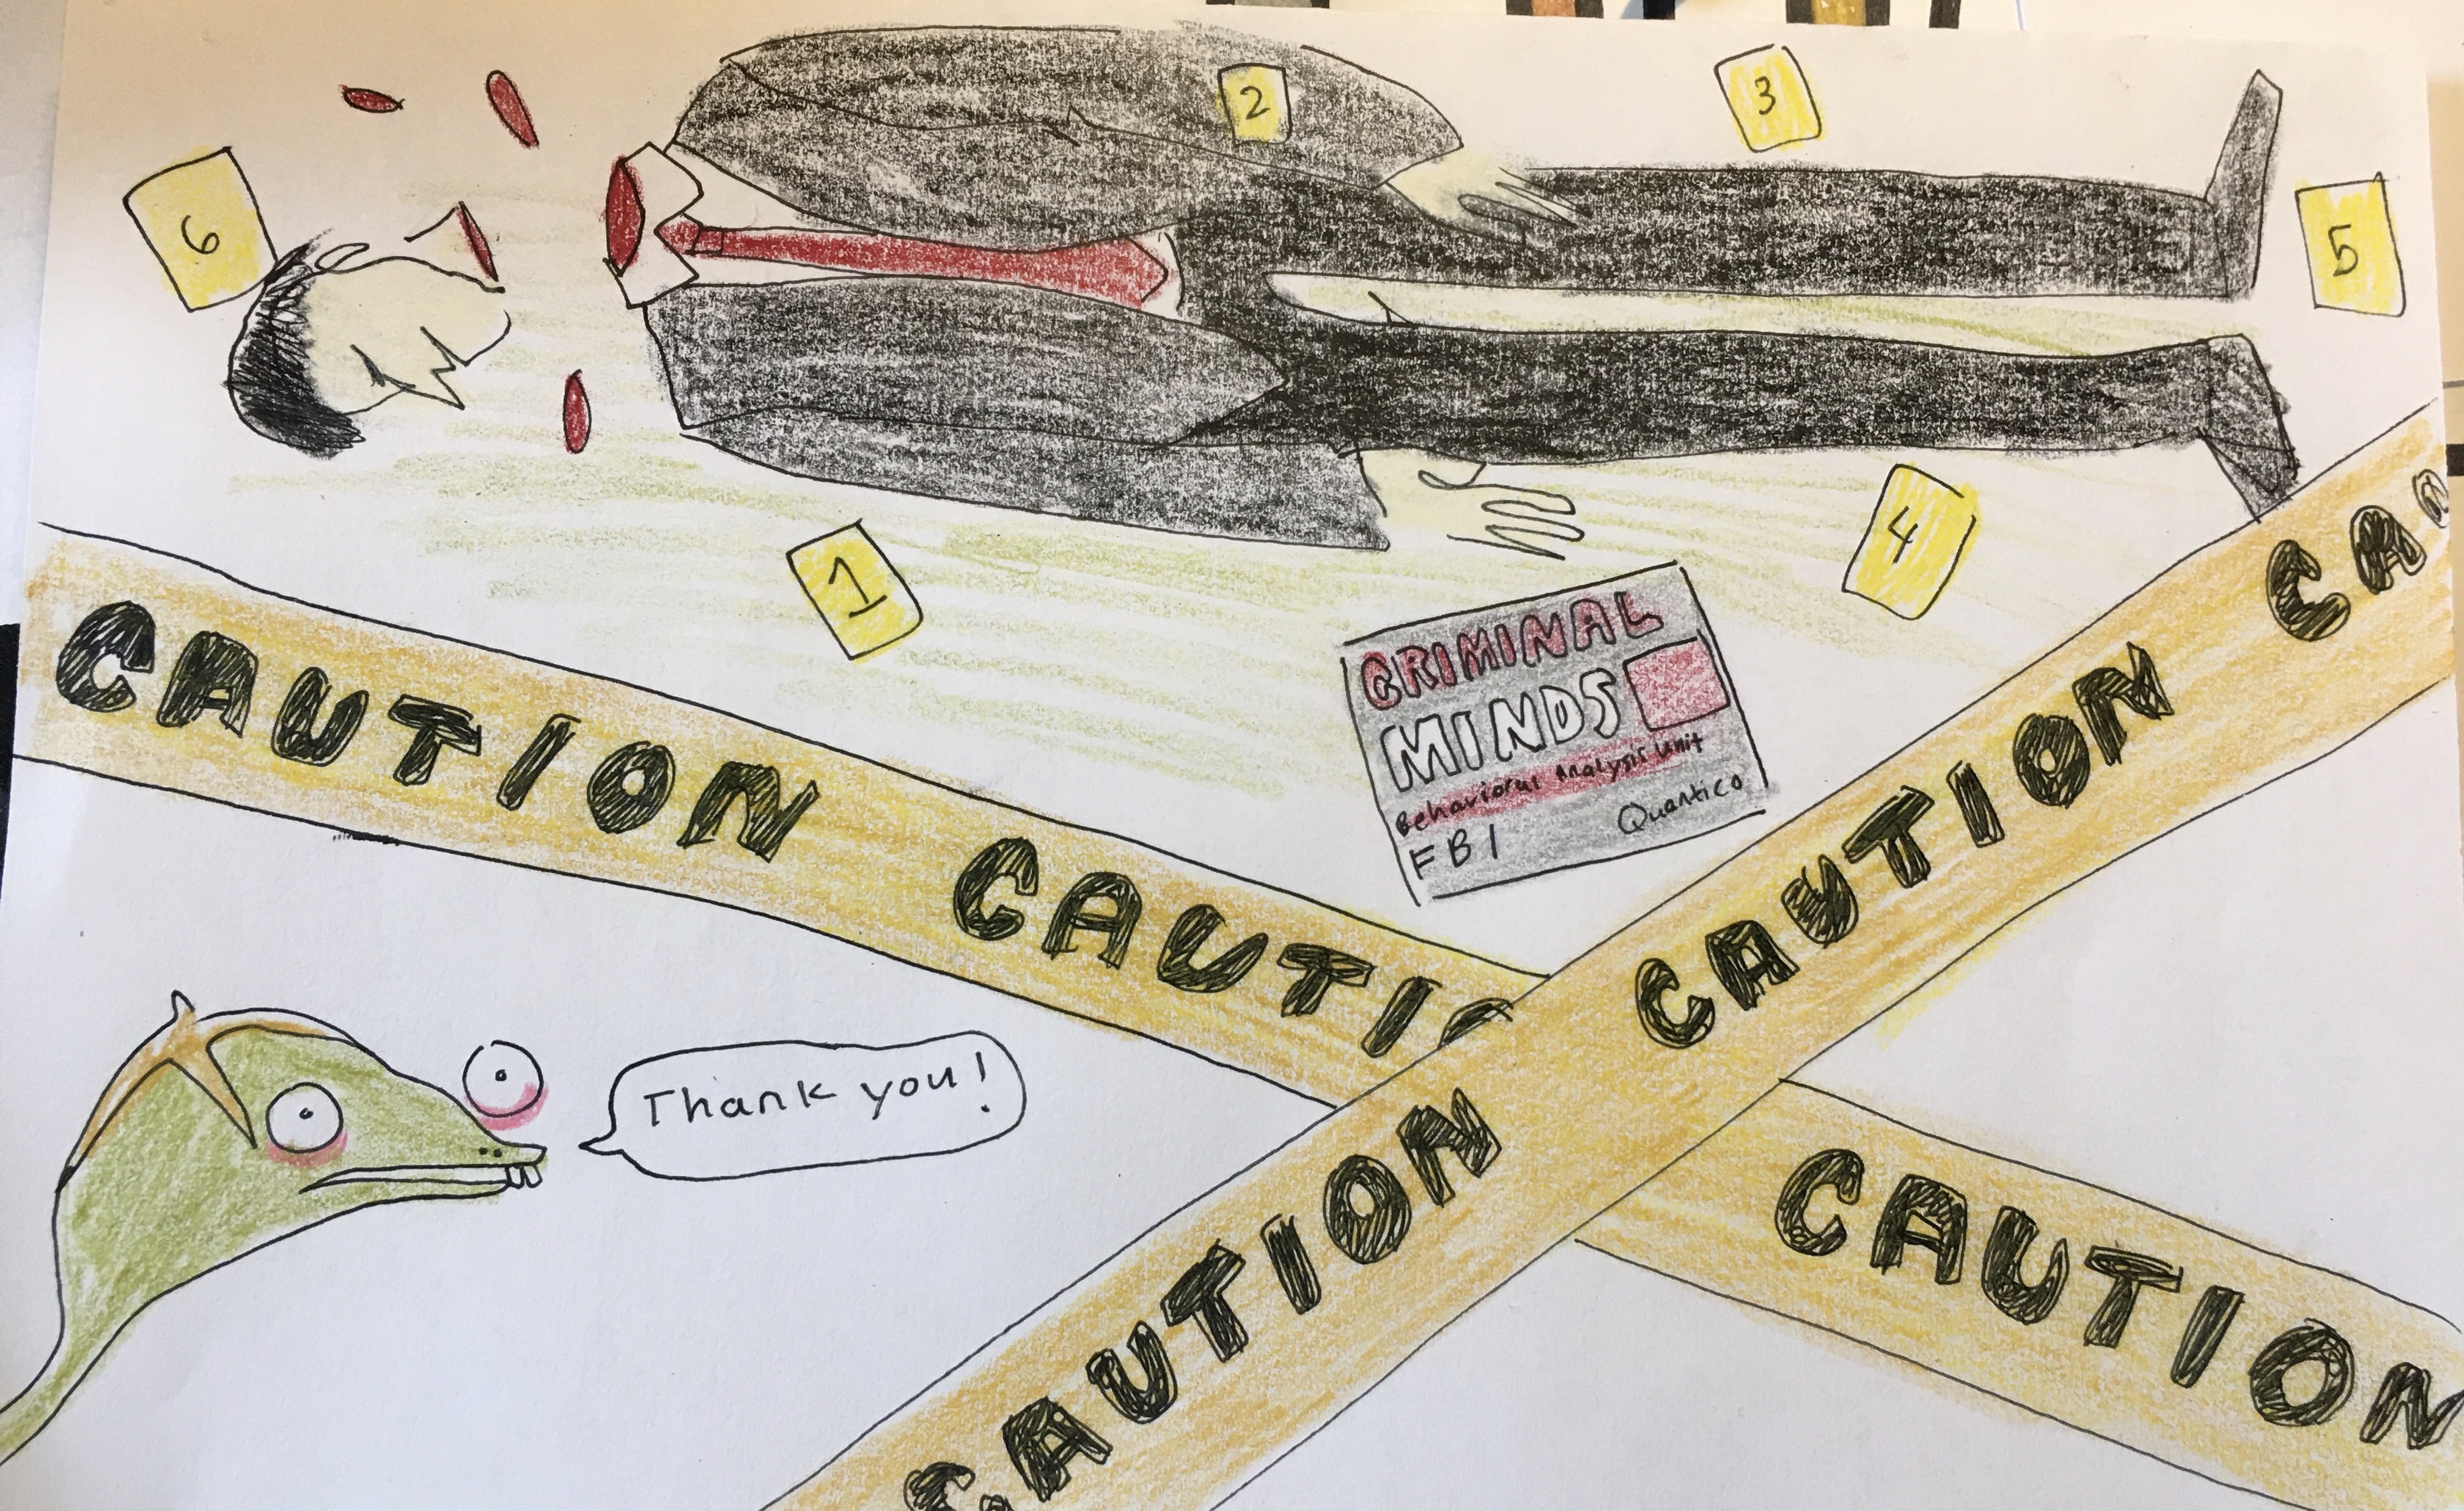 2
3
6
5
4
1
CRIMINAL
MINDS
Behavioral Analysis Unit
FBI Quantico
CAUTION CAUTIO
CAUTION
CAUTION CAUTION CAU
Thank you!